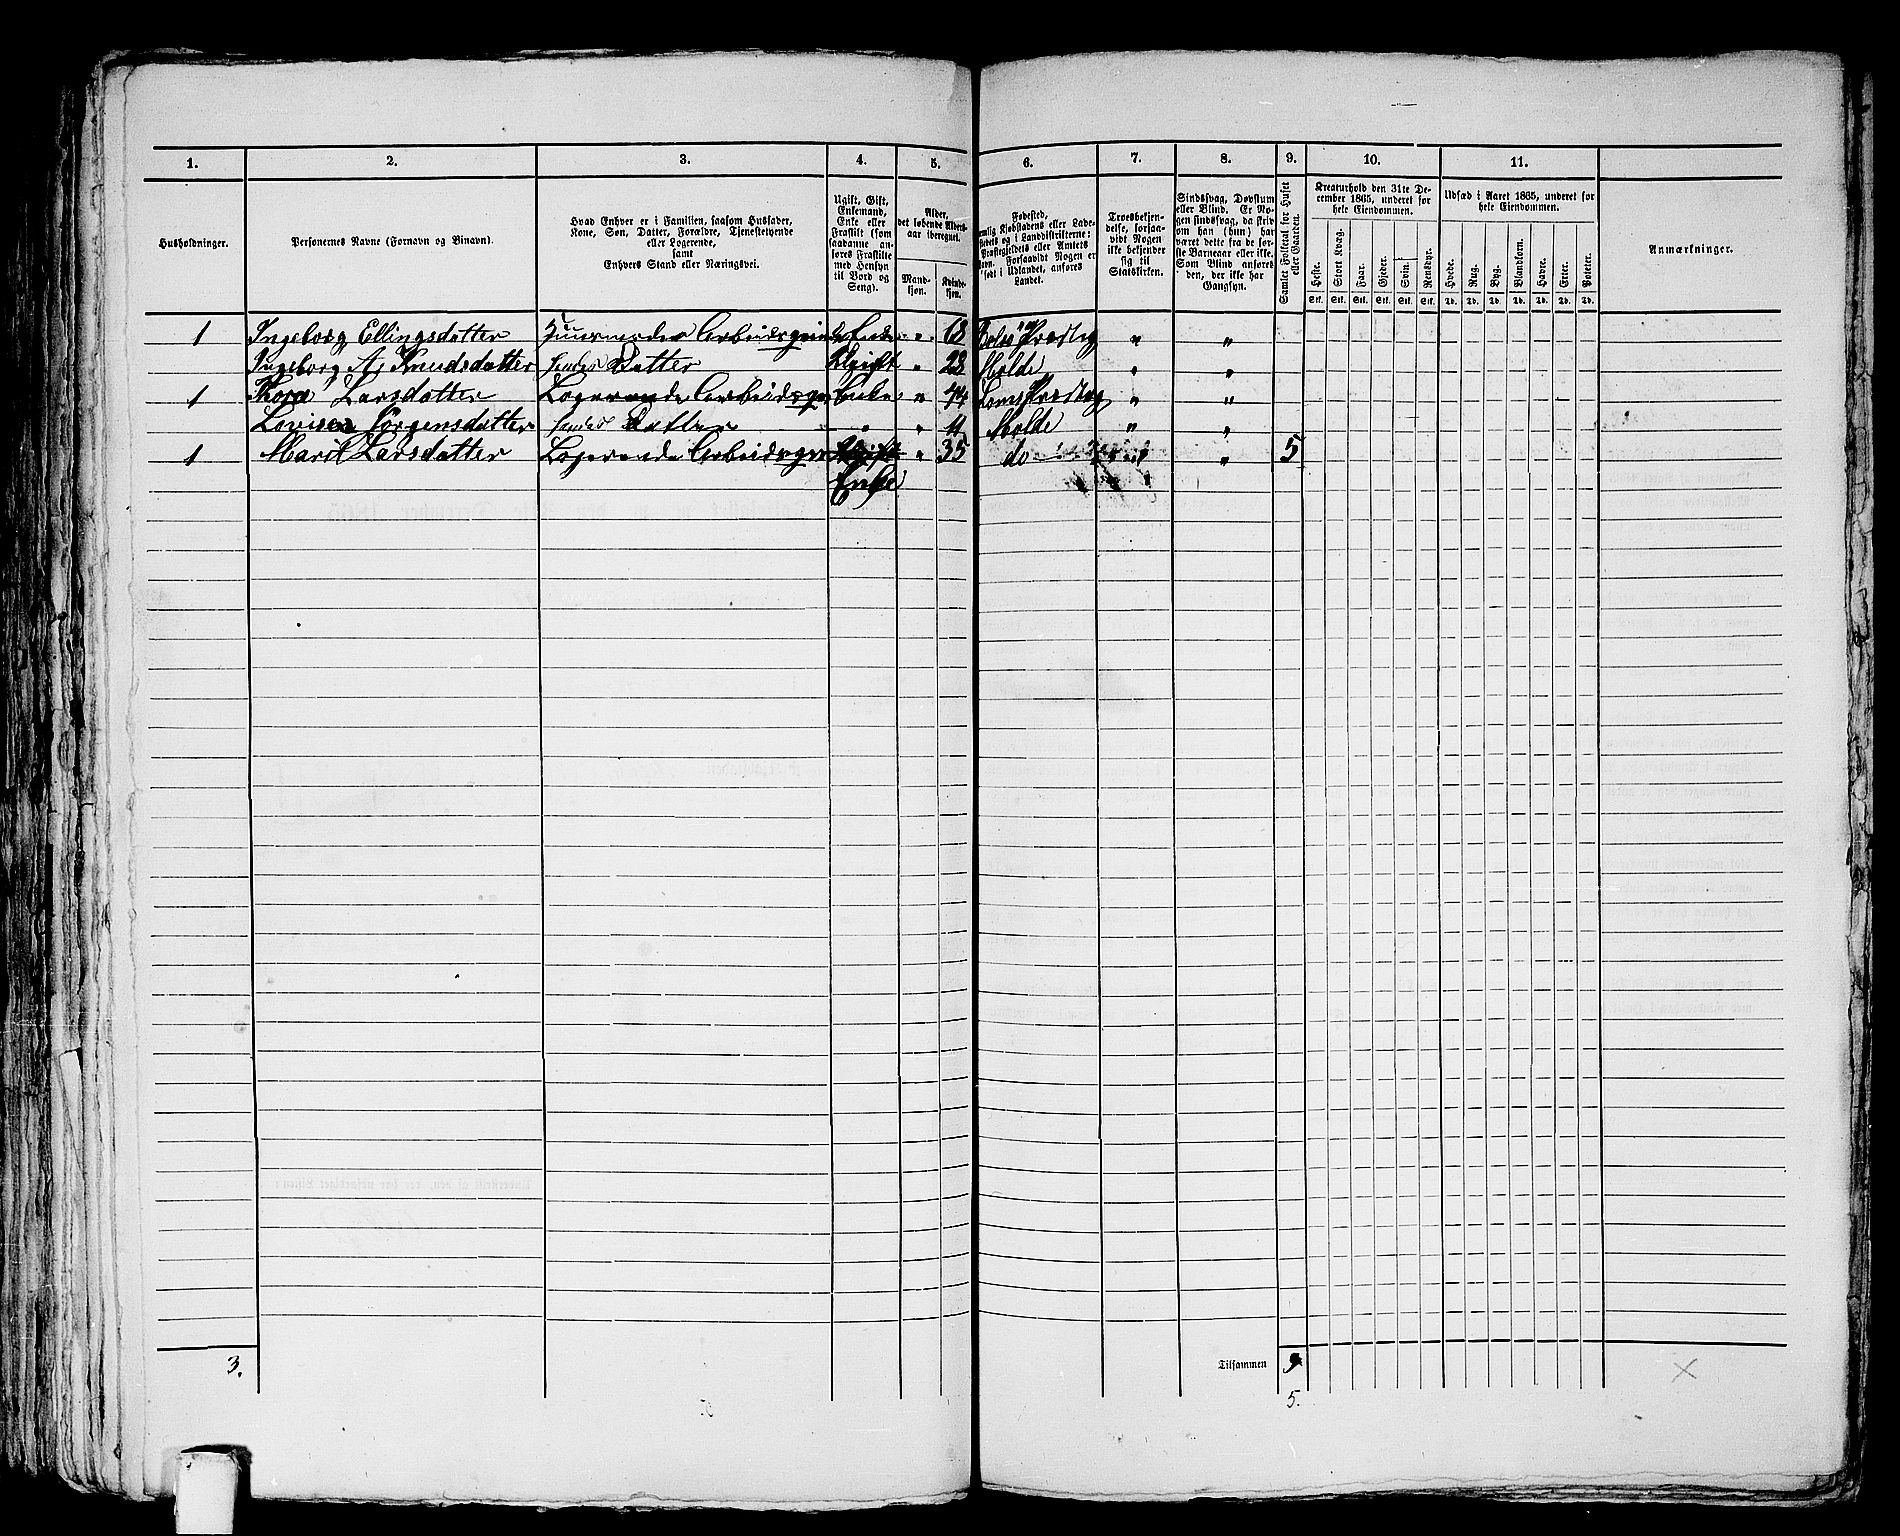 1. 2. 3. 4. 5. 6. 7. 8. 9. 10. 11.
Husholdninger.
Personernes Navne (Fornavn og Binavn).
Hvad Enhver er i Familien, saasom Husfader,
Kone, Søn, Datter, Forældre, Tjenestetyende
eller Logerende,
samt
Enhvers Stand eller Næringsvei.
Ugift, Gift,
Enkemand,
Enke eller
Fraskilt (som
saadanne an-
føres Fraskilte
med Hensyn
til Bord og
Seng).
Alder,
det løbende Alders-
aar iberegnet.
Mand-
kjøn.
Kvinde-
kjøn.
Fødested,
nemlig Kjøbstadens eller Lade-
stedets og i Landdistrikterne:
Præstegjeldets eller Amtets
Navn. Forsaavidt Nogen er
født i Udlandet, anføres
Landet.
Troesbekjen-
delse, forsaa-
vidt Nogen
ikke bekjender
sig til
Statskirken.
Sindssvag, Døvstum
eller Blind. Er No-
gen sindssvag, da skriv
om han (hun) har
været dette fra de før-
ste Barneaar eller ikke.
Som Blind anføres
den, der ikke har
Gangsyn.
Samlet Folketal for Huset
eller Gaarden.
Kreaturhold den 31te De-
cember 1865, underet for
hele Eiendommen.
Heste. Stort Kvæg. Faar. Gjeder. Svin. Rensdyr.
Stk. Stk. Stk. Stk. Stk. Stk.
Udsæd i Aaret 1865, underet for
hele Eiendommen.
Hvede. Rug. Byg. Blandkorn. Havre. Erter. Poteter.
Td. Td. Td. Td. Td. Td. Td.
Anmærkninger.
1 Ingeborg Ellingsdatter Arbeidsqvinde Enke " 68 Bolsø Presteg " "
Ingeborg A. Knudsdatter hendes Datter Ugift " 28 Molde " "
1 Thora Larsdatter Logerende Arbeidsqv Enke " 74 Loms Presteg " "
Lovise Jørgensdatter hendes Datter " " 11 Molde " "
1 Marit Larsdatter Logerende Arbeidsqv Ugift " 35 do " " 5
Enke
3. Tilsammen
5.